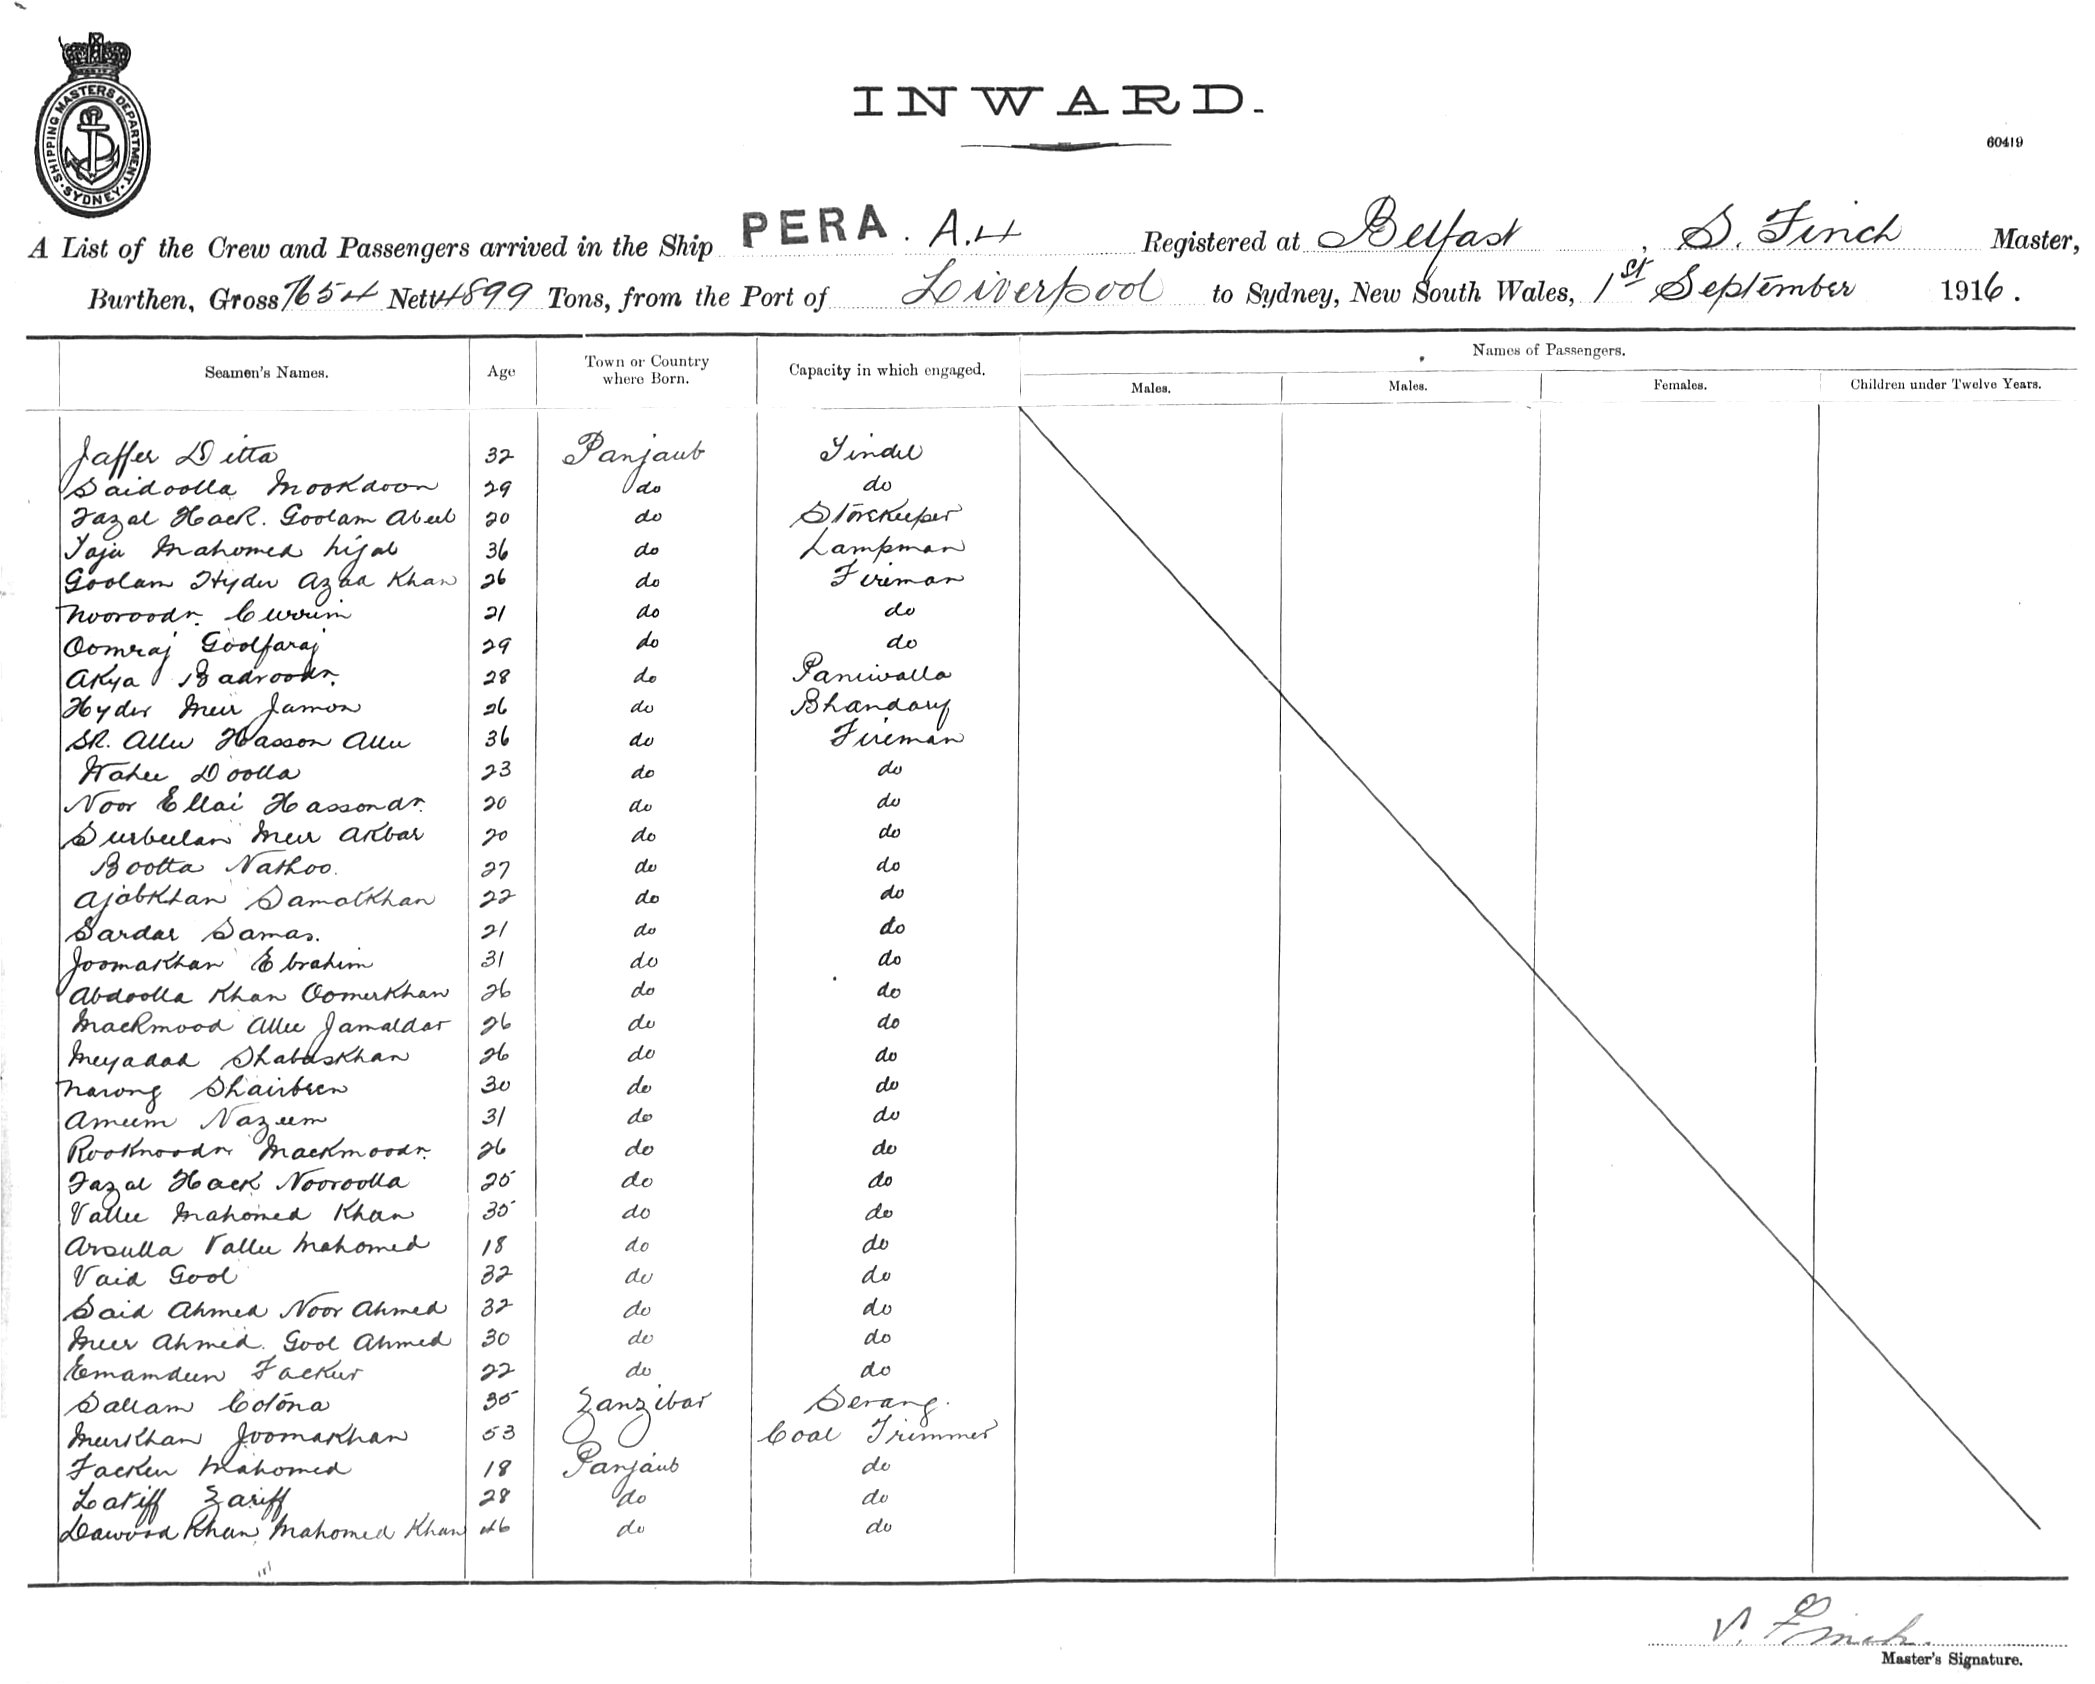 SHIPPING MASTERS DEPARTMENT · SYDNEY ·
INWARD.
60419
A List of the Crew and Passengers arrived in the Ship PERA. A.4 Registered at Belfast, S. Finch Master,
Burthen, Gross 7654 Nett 4899 Tons, from the Port of Liverpool to Sydney, New South Wales, 1st September 1916.
Seamen's Names. Age Town or Country where Born. Capacity in which engaged. Names of Passengers.
Males. Males. Females. Children under Twelve Years.
Jaffer Ditta 32 Panjaub Tindel
Saidoolla Mookdoon 29 do do
Fazal Hack. Goolam Abeel 20 do Storekeeper
Taja Mahomed 36 do Lampman
Goolam Hyder Azad Khan 26 do Fireman
Nooroodn. Currim 21 do do
Oomraj Goolfaraj 29 do do
Akya Badroodn. 28 do Paniwalla
Hyder Meer Jamon 26 do Bhandary
SK. Allee Hasson Allee 36 do Fireman
Wahee Doolla 23 do do
Noor Ellai Hassondn. 20 do do
Surbulan Meer Akbar 20 do do
Bootta Nathoo. 27 do do
Ajabkhan Samatkhan 22 do do
Sardar Samas. 21 do do
Joomakhan Ebrahim 31 do do
Abdoolla Khan Oomerkhan 26 do do
Mackmood Allee Jamaldar 26 do do
Meyadad Shabaskhan 26 do do
Narong Shairbeen 30 do do
Ameem Nazeem 31 do do
Rooknoodn Mackmoodn. 26 do do
Fazal Hack Nooroolla 25 do do
Vallee Mahomed Khan 35 do do
Arsulla Vallee Mahomed 18 do do
Vaid Gool 32 do do
Said Ahmed Noor Ahmed 32 do do
Meer Ahmed. Gool Ahmed 30 do do
Emamdeen Fackur 22 do do
Sallam Cotona 35 Zanzibar Serang.
Meerkhan Joomakhan 53 Coal Trimmer
Fackeer Mahomed 18 Panjaub do
Latiff Zariff 28 do do
Dawood Khan, Mahomed Khan 46 do do
S. Finch.
Master's Signature.